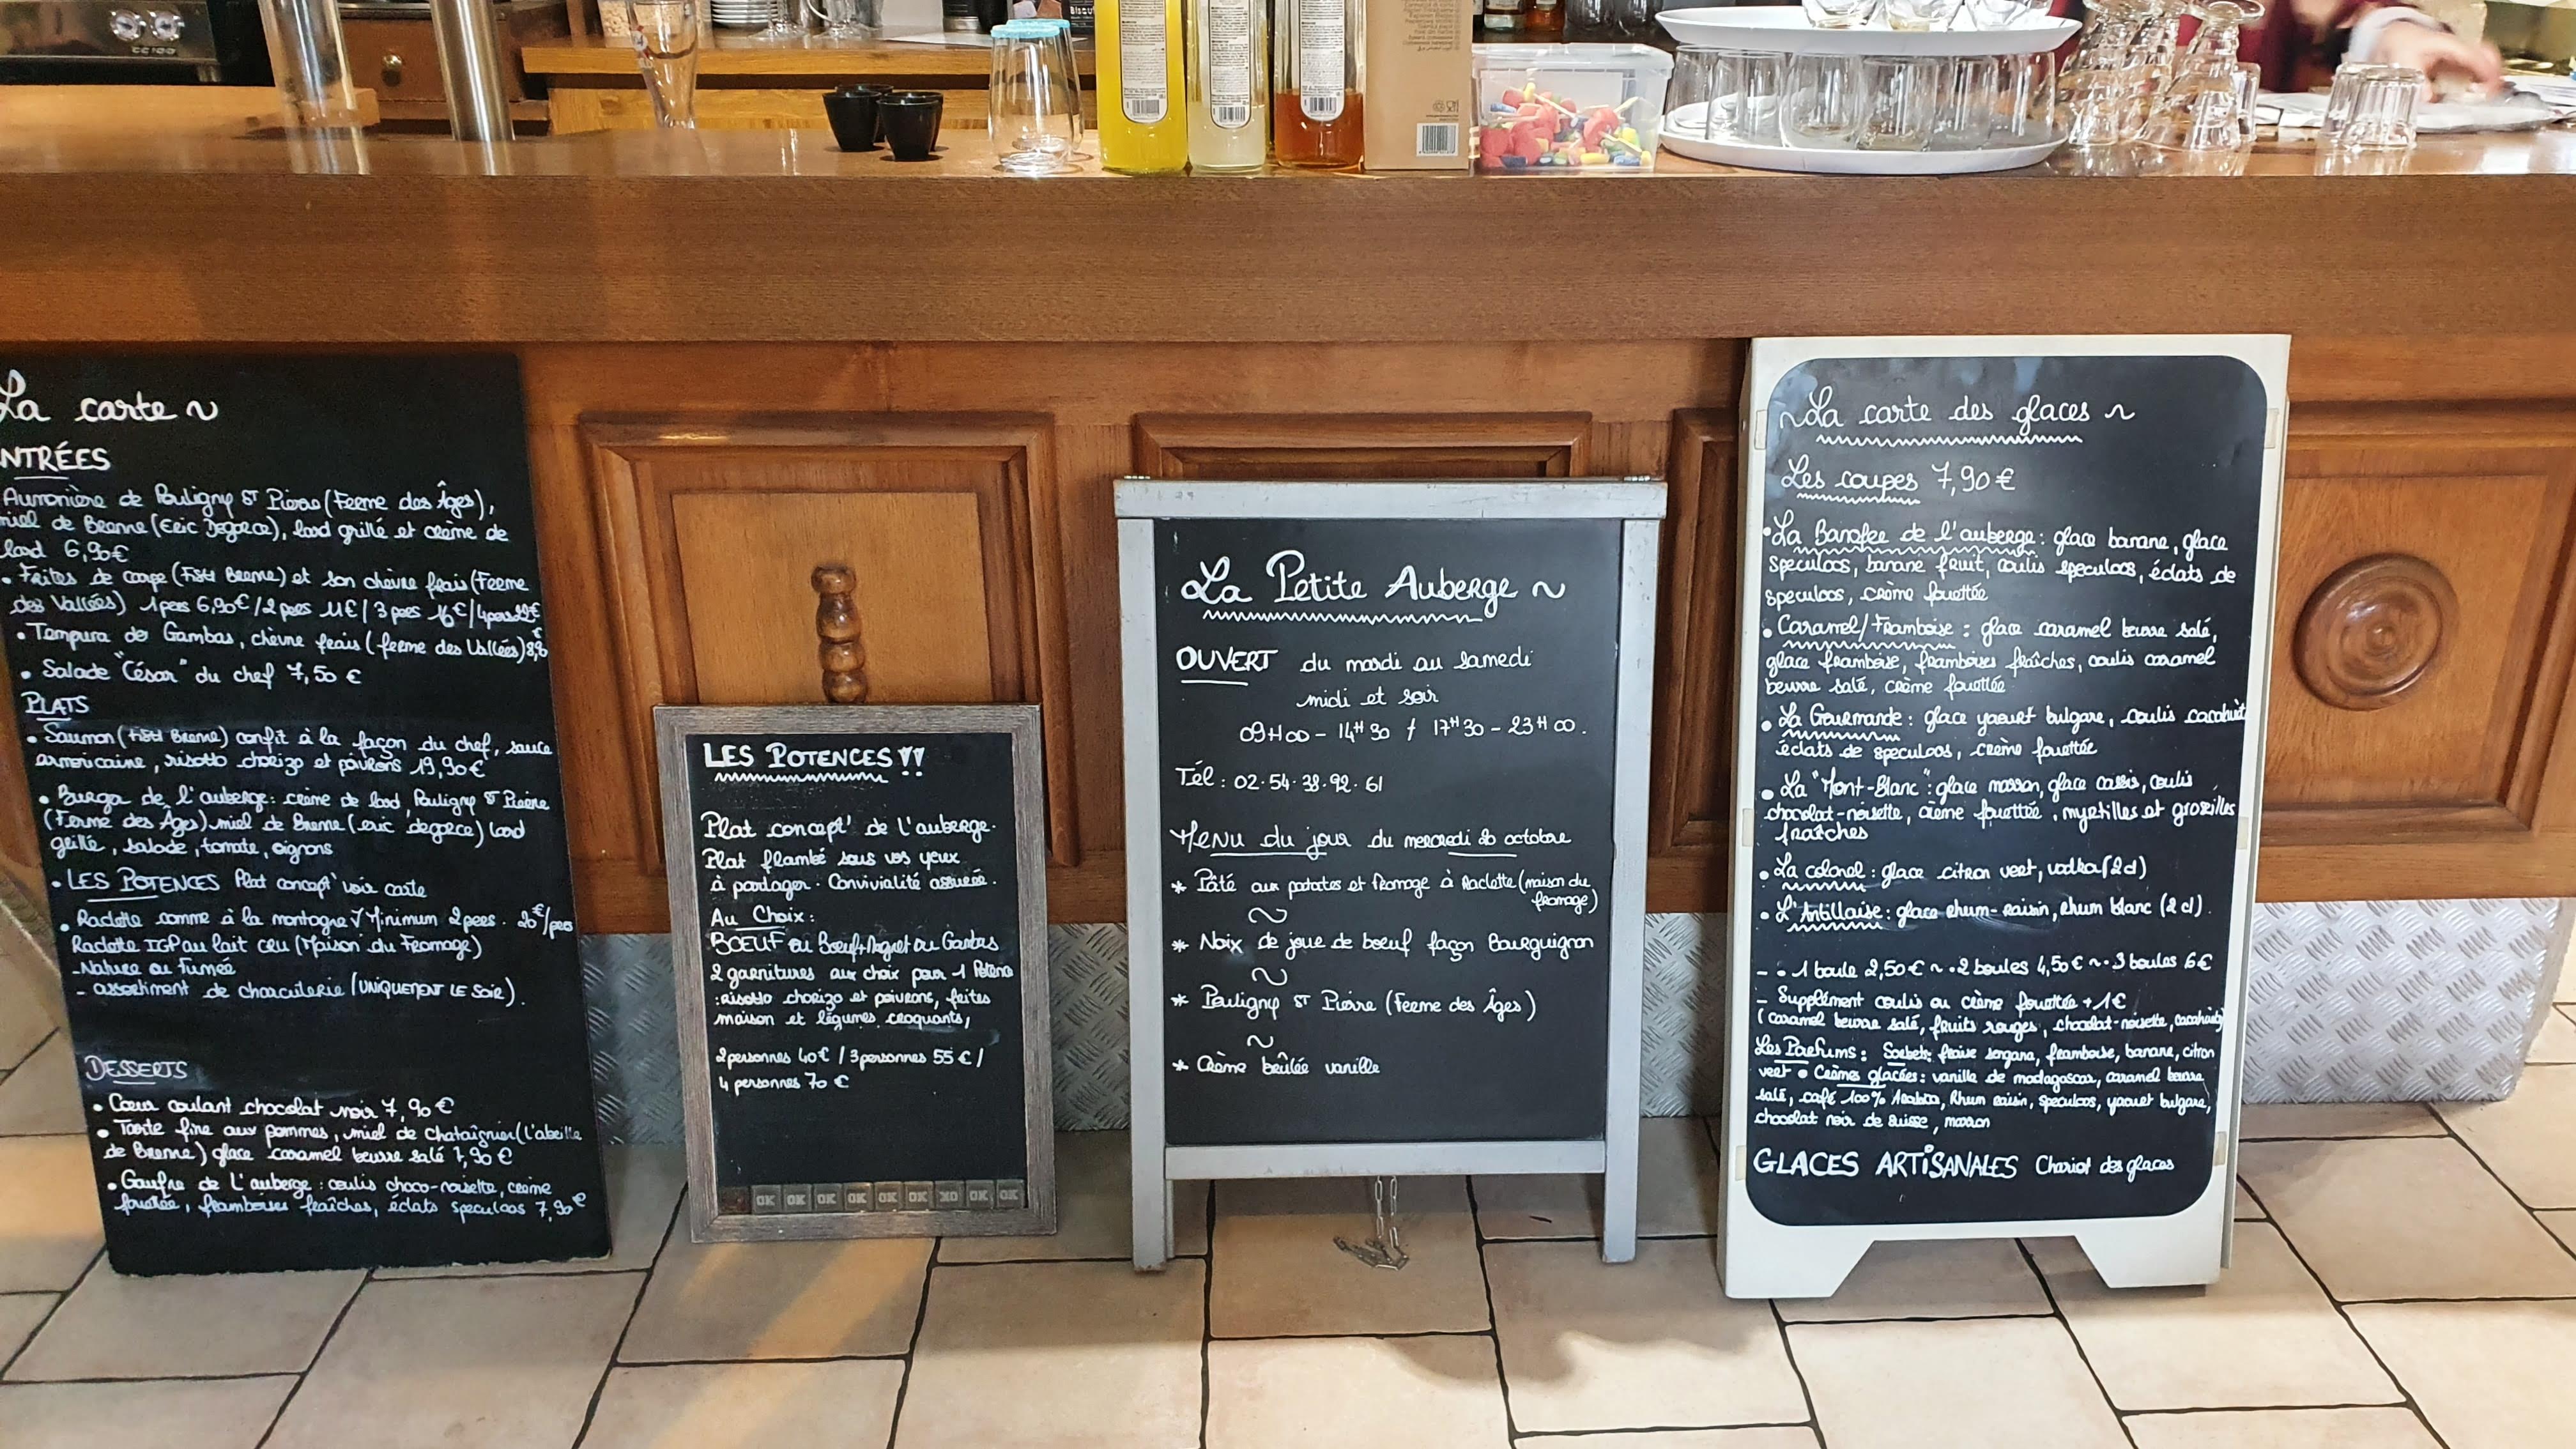 La carte ~
NTRÉES
Aumonière de Pouligny ST Pierre (Ferme des Âges),
miel de Brenne (Eric Degorce), lard grillé et crème de
lard 6,90€
• Frites de carpe (Fish Brenne) et son chèvre frais (Ferme
des Vallées) 1 pers 6,90€ / 2 pers 11€ / 3 pers 16€ / 4 pers
• Tempura de Gambas, chèvre frais (ferme des Vallées)
• Salade "César" du chef 7,50 €
PLATS
• Saumon (Fish Brenne) confit à la façon du chef, sauce
armoricaine, risotto chorizo et poivrons 19,90€
• Burger de l'auberge: crème de lard, Pouligny ST Pierre
(Ferme des Âges) miel de Brenne (eric degorce) lard
grillé, salade, tomate, oignons
• LES POTENCES Plat concept' voir carte
• Raclette comme à la montagne Minimum 2 pers. 20€/pers
Raclette IGP au lait cru (Maison du Fromage)
- Nature ou fumée
- assortiment de charcuterie (UNIQUEMENT LE SOIR).
DESSERTS
• Cœur coulant chocolat noir 7,90 €
• Tarte fine aux pommes, miel de chataîgnier (l'abeille
de Brenne) glace caramel beurre salé 7,90 €
• Gaufre de L'auberge : coulis choco-noisette, crème
fouettée, framboises fraîches, éclats speculoos 7,90€
LES POTENCES !!
Plat concept' de l'auberge.
Plat flambé sous vos yeux
à partager. Convivialité assurée.
Au Choix:
BŒUF ou Boeuf+Magret ou Gambas
2 garnitures aux choix pour 1 Potence
: risotto chorizo et poivrons, frites
maison et légumes croquants,
2 personnes 40€ / 3 personnes 55 € /
4 personnes 70 €
OK OK OK OK OK OK OK OK OK
La Petite Auberge ~
OUVERT du mardi au samedi
midi et soir
09H00 - 14H30 / 17H30 - 23H00.
Tél : 02.54.38.92.61
Menu du jour du mercredi octobre
* Pâté aux patates et fromage à Raclette (maison du
fromage)
~
* Noix de joue de boeuf façon Bourguignon
~
* Pouligny ST Pierre (Ferme des Âges)
~
* Crème brûlée vanille
~ La carte des glaces ~
Les coupes 7,90 €
• La Banofee de l'auberge : glace banane, glace
speculoos, banane fruit, coulis speculoos, éclats de
speculoos, crème fouettée
• Caramel/Framboise : glace caramel beurre salé,
glace framboise, framboises fraîches, coulis caramel
beurre salé, crème fouettée
• La Gourmande : glace yaourt bulgare, coulis cacahuète
éclats de speculoos, crème fouettée
• La "Mont-Blanc" : glace marron, glace cassis, coulis
chocolat-noisette, crème fouettée, myrtilles et groseilles
fraîches
• La colonel : glace citron vert, vodka (2 cl)
• L'Antillaise : glace rhum-raisin, rhum blanc (2 cl).
- • 1 boule 2,50 € ~ • 2 boules 4,50 € ~ • 3 boules 6€
- Supplément coulis ou crème fouettée +1€
(caramel beurre salé, fruits rouges, chocolat-noisette, cacahuète)
Les Parfums : Sorbets: fraise sengana, framboise, banane, citron
vert • Crèmes glacées : vanille de madagascar, caramel beurre
salé, café 100% Arabica, Rhum raisin, speculoos, yaourt bulgare,
chocolat noir de suisse, marron
GLACES ARTISANALES Chariot des glaces